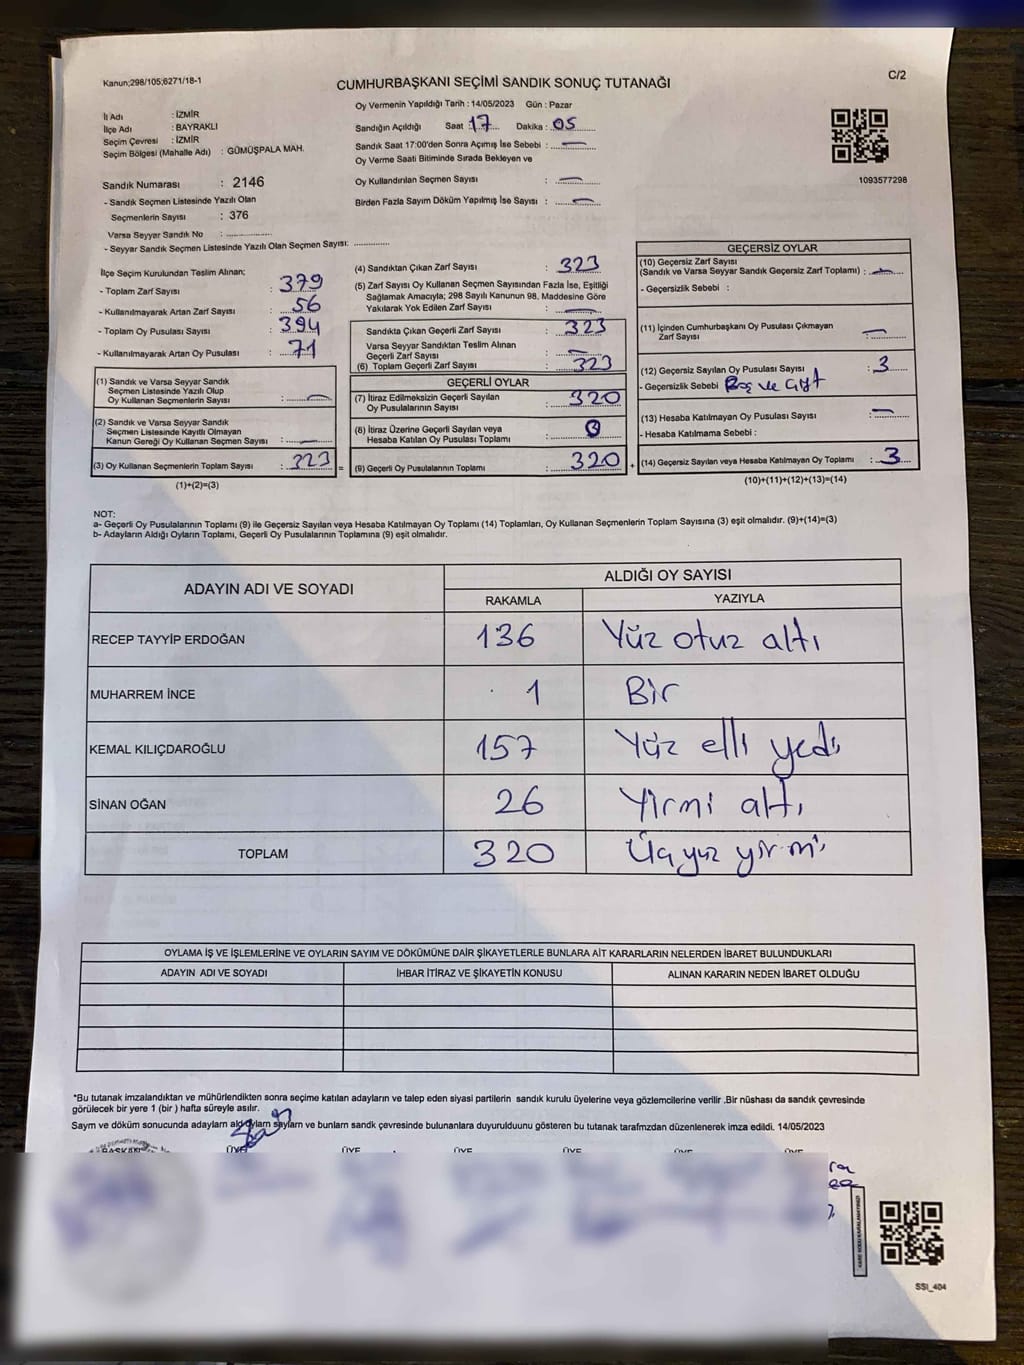 Kanun;298/105;6271/18-1
CUMHURBAŞKANI SEÇİMİ SANDIK SONUÇ TUTANAĞI
C/2
İl Adı : İZMİR
İlçe Adı : BAYRAKLI
Seçim Çevresi : İZMİR
Seçim Bölgesi (Mahalle Adı) : GÜMÜŞPALA MAH.
Sandık Numarası : 2146
- Sandık Seçmen Listesinde Yazılı Olan
Seçmenlerin Sayısı : 376
Varsa Seyyar Sandık No : ..............
- Seyyar Sandık Seçmen Listesinde Yazılı Olan Seçmen Sayısı: ............
Oy Vermenin Yapıldığı Tarih : 14/05/2023 Gün : Pazar
Sandığın Açıldığı Saat : 17 Dakika : 05
Sandık Saat 17:00'den Sonra Açımış İse Sebebi : —
Oy Verme Saati Bitiminde Sırada Bekleyen ve
Oy Kullandırılan Seçmen Sayısı : —
Birden Fazla Sayım Döküm Yapılmış İse Sayısı : —
1093577298
İlçe Seçim Kurulundan Teslim Alınan;
- Toplam Zarf Sayısı : 379
- Kullanılmayarak Artan Zarf Sayısı : 56
- Toplam Oy Pusulası Sayısı : 394
- Kullanılmayarak Artan Oy Pusulası : 71
(1) Sandık ve Varsa Seyyar Sandık
Seçmen Listesinde Yazılı Olup
Oy Kullanan Seçmenlerin Sayısı : —
(2) Sandık ve Varsa Seyyar Sandık
Seçmen Listesinde Kayıtlı Olmayan
Kanun Gereği Oy Kullanan Seçmen Sayısı : —
(3) Oy Kullanan Seçmenlerin Toplam Sayısı : 323 =
(1)+(2)=(3)
(4) Sandıktan Çıkan Zarf Sayısı : 323
(5) Zarf Sayısı Oy Kullanan Seçmen Sayısından Fazla İse, Eşitliği
Sağlamak Amacıyla; 298 Sayılı Kanunun 98. Maddesine Göre
Yakılarak Yok Edilen Zarf Sayısı : —
Sandıkta Çıkan Geçerli Zarf Sayısı : 323
Varsa Seyyar Sandıktan Teslim Alınan
Geçerli Zarf Sayısı : —
(6) Toplam Geçerli Zarf Sayısı : 323
GEÇERLİ OYLAR
(7) İtiraz Edilmeksizin Geçerli Sayılan
Oy Pusulalarının Sayısı : 320
(8) İtiraz Üzerine Geçerli Sayılan veya
Hesaba Katılan Oy Pusulası Toplamı :
(9) Geçerli Oy Pusulalarının Toplamı : 320 +
GEÇERSİZ OYLAR
(10) Geçersiz Zarf Sayısı
(Sandık ve Varsa Seyyar Sandık Geçersiz Zarf Toplamı) : —
- Geçersizlik Sebebi :
(11) İçinden Cumhurbaşkanı Oy Pusulası Çıkmayan
Zarf Sayısı : —
(12) Geçersiz Sayılan Oy Pusulası Sayısı : 3
- Geçersizlik Sebebi Boş ve çift
(13) Hesaba Katılmayan Oy Pusulası Sayısı : —
- Hesaba Katılmama Sebebi :
(14) Geçersiz Sayılan veya Hesaba Katılmayan Oy Toplamı : 3
(10)+(11)+(12)+(13)=(14)
NOT:
a- Geçerli Oy Pusulalarının Toplamı (9) ile Geçersiz Sayılan veya Hesaba Katılmayan Oy Toplamı (14) Toplamları, Oy Kullanan Seçmenlerin Toplam Sayısına (3) eşit olmalıdır. (9)+(14)=(3)
b- Adayların Aldığı Oyların Toplamı, Geçerli Oy Pusulalarının Toplamına (9) eşit olmalıdır.
ADAYIN ADI VE SOYADI ALDIĞI OY SAYISI
RAKAMLA YAZIYLA
RECEP TAYYİP ERDOĞAN 136 Yüz otuz altı
MUHARREM İNCE 1 Bir
KEMAL KILIÇDAROĞLU 157 Yüz elli yedi
SİNAN OĞAN 26 Yirmi altı
TOPLAM 320 Üçyüz yirmi
OYLAMA İŞ VE İŞLEMLERİNE VE OYLARIN SAYIM VE DÖKÜMÜNE DAİR ŞİKAYETLERLE BUNLARA AİT KARARLARIN NELERDEN İBARET BULUNDUKLARI
ADAYIN ADI VE SOYADI İHBAR İTİRAZ VE ŞİKAYETİN KONUSU ALINAN KARARIN NEDEN İBARET OLDUĞU
*Bu tutanak imzalandıktan ve mühürlendikten sonra seçime katılan adayların ve talep eden siyasi partilerin sandık kurulu üyelerine veya gözlemcilerine verilir .Bir nüshası da sandık çevresinde
görülecek bir yere 1 (bir ) hafta süreyle asılır.
Sayım ve döküm sonucunda adayların aldıkları oyların sayıları ve bunların sandık çevresinde bulunanlara duyurulduunu gösteren bu tutanak tarafımızdan düzenlenerek imza edildi. 14/05/2023
BAŞKAN ÜYE ÜYE ÜYE ÜYE ÜYE ÜYE
SSI_404